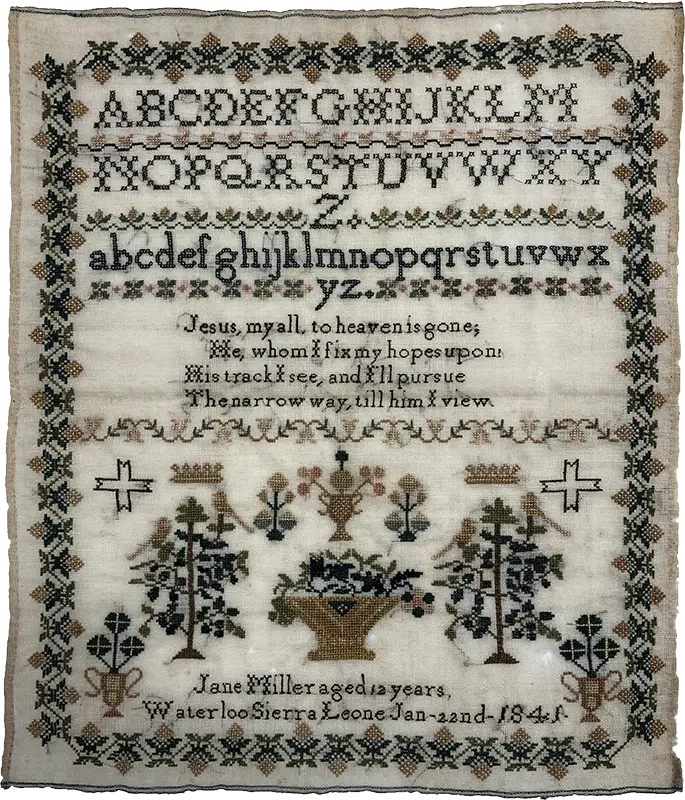 ABCDEFGHIJKLM
NOPQRSTUVWXY
Z.
abcdefghijklmnopqrstuvwx
yz.
Jesus, my all, to heaven is gone;
He, whom I fix my hopes upon:
His track I see, and I'll pursue
The narrow way, till him I view.
Jane Miller aged 12 years,
Waterloo Sierra Leone Jan-22nd-1841